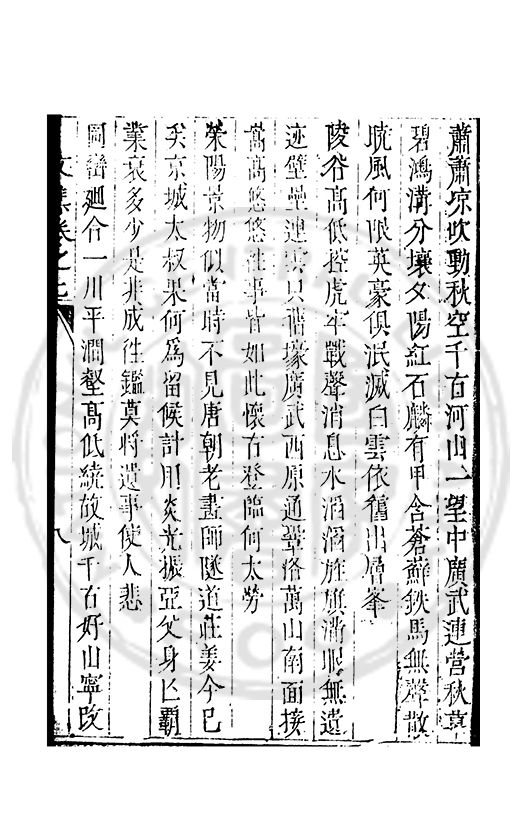 蕭蕭凉吹動秋空千古河山一望中廣武連營秋草
碧鴻溝分壤夕陽紅石麟有甲含蒼蘚鉄馬無聲散
曉風何限英豪俱泯滅白雲依舊出層峯
陵谷髙低控虎牢戰聲消息水滔滔旌旗滿眼無遺
迹壁壘連雲只舊壕廣武西原通鞏洛萬山南面接
嵩髙悠悠徃事皆如此懷古登臨何太勞
荥陽景物似當時不見唐朝老畫師隧道莊姜今已
矣京城太叔果何爲留候計用炎光振亞父身亡覇
業衰多少是非成徃鑑莫將遺事使人悲
岡巒廻合一川平澗壑髙低繞故城千古好山寧改
文集卷之七
八